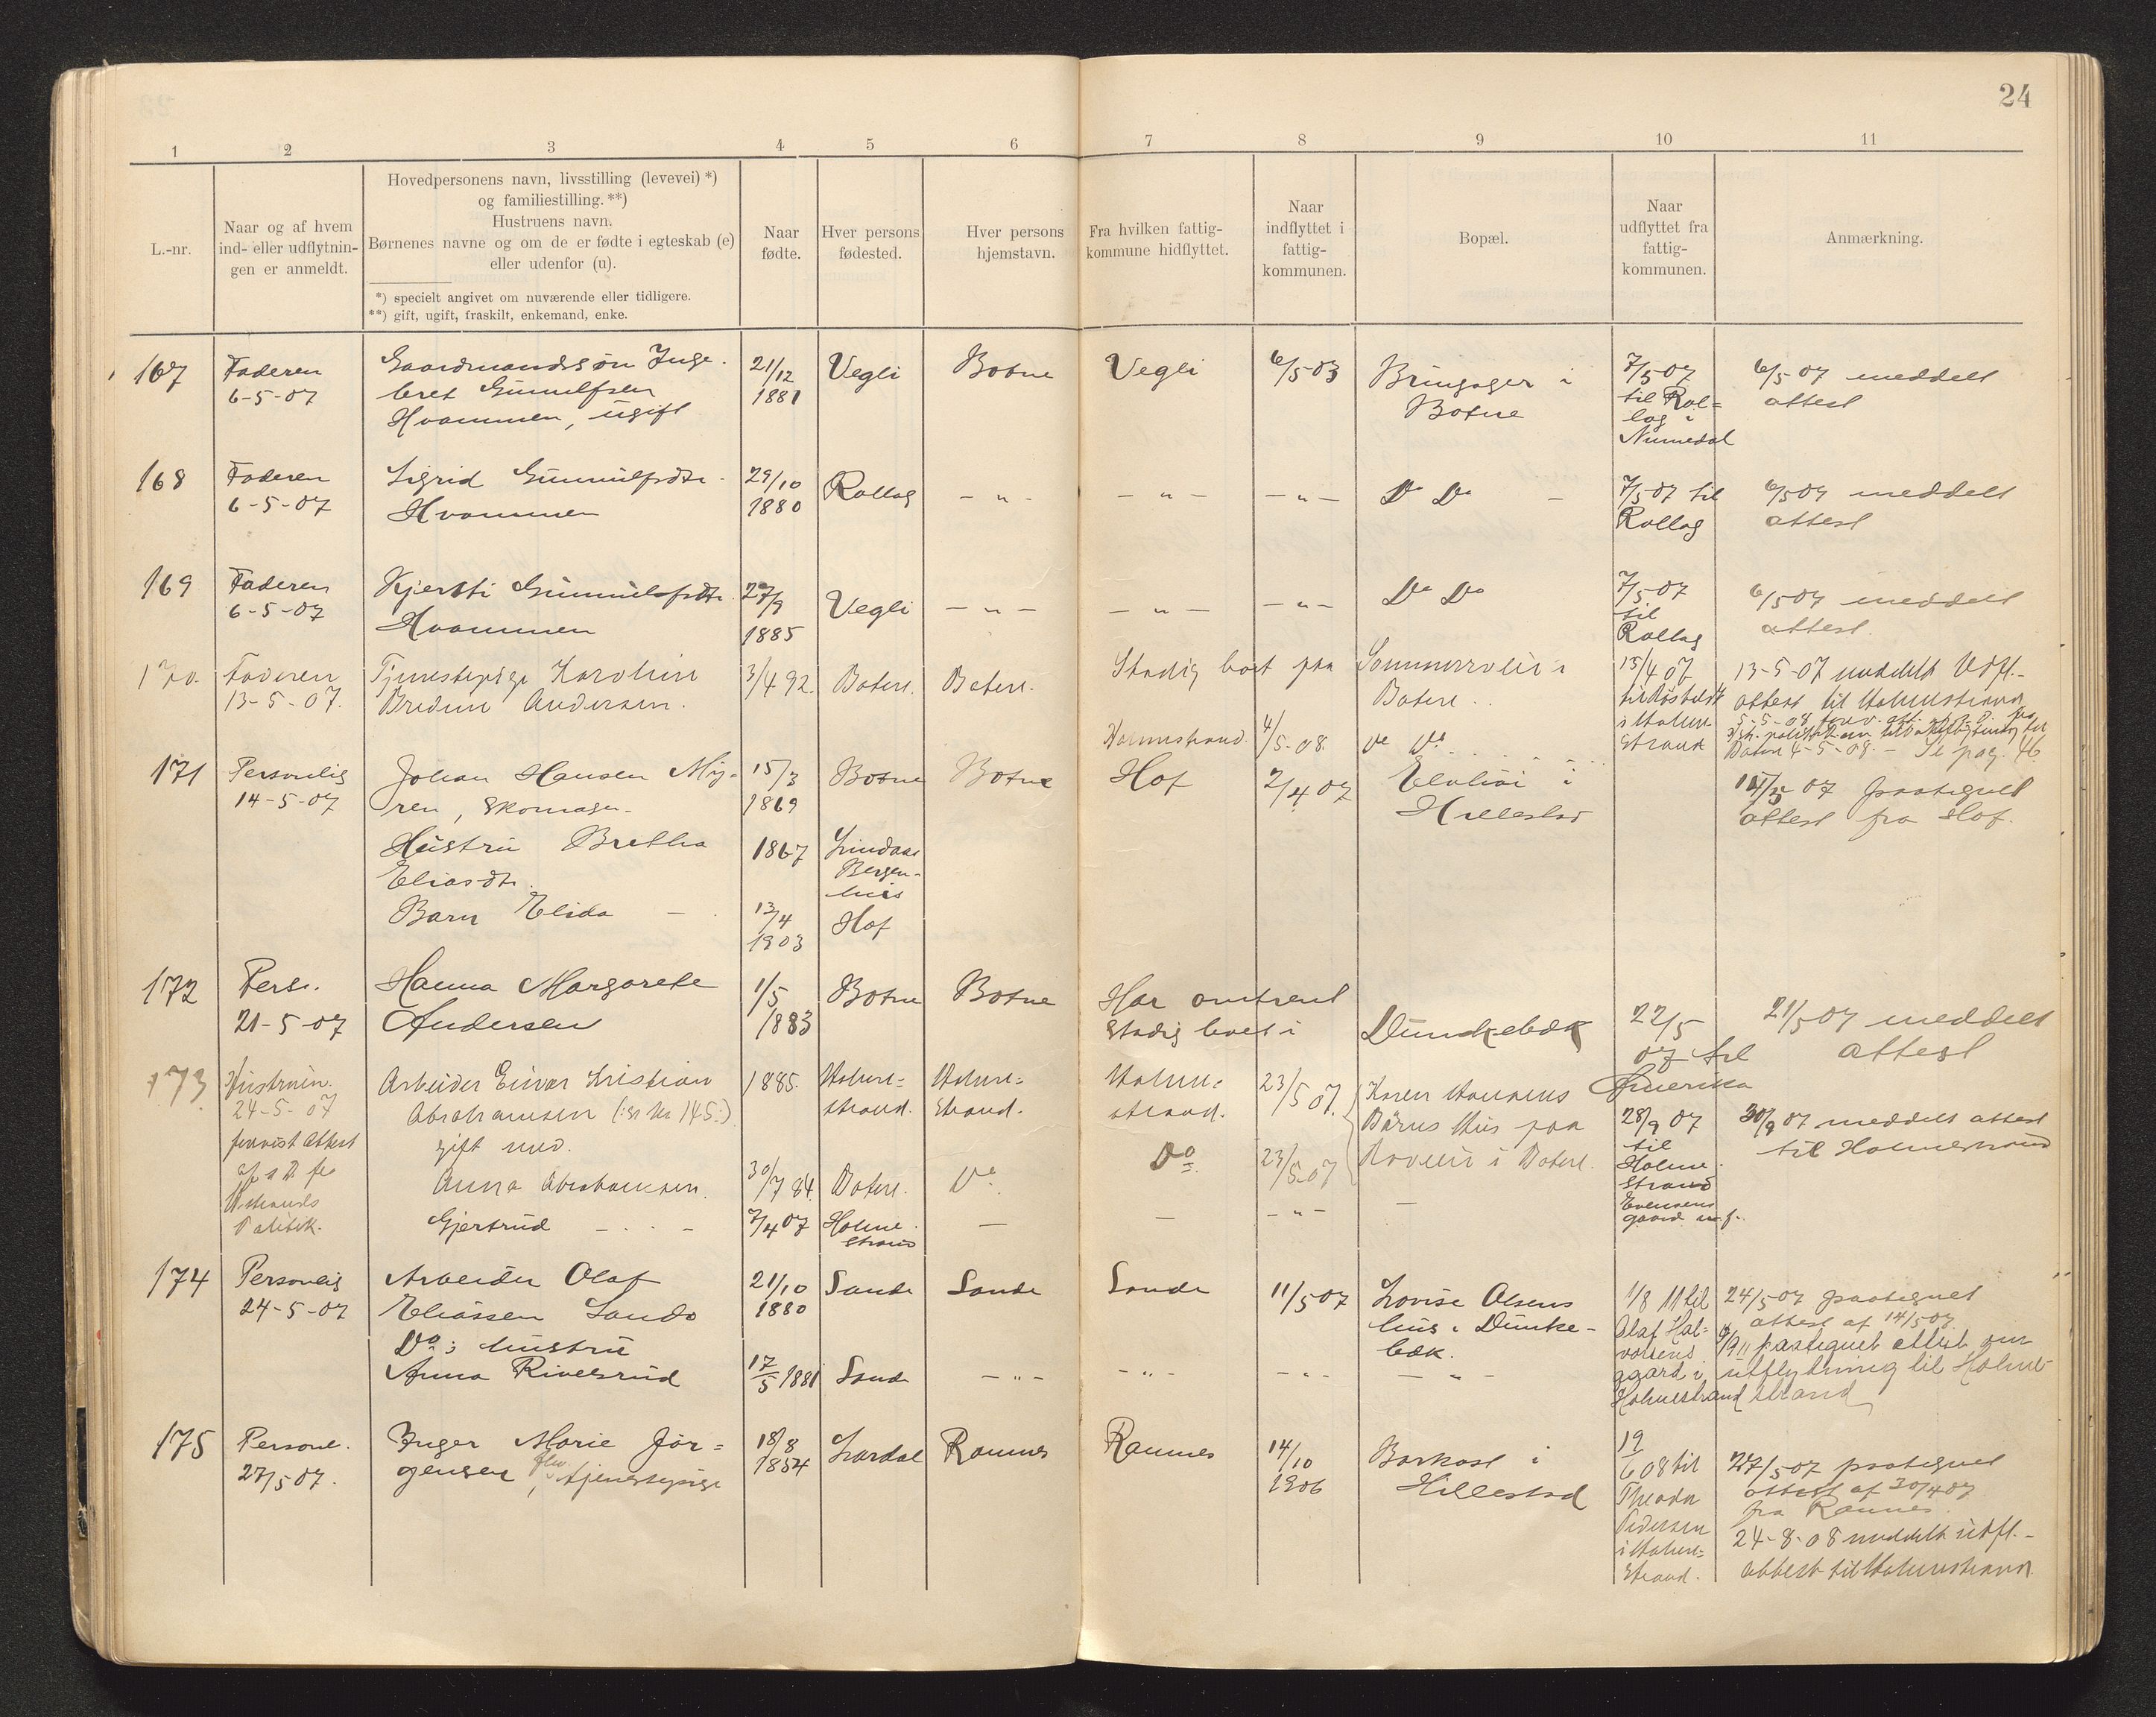 24
1 2 3 4 5 6 7 8 9 10 11
L.-nr.
Naar og af hvem
ind- eller udflytnin-
gen er anmeldt.
Hovedpersonens navn, livsstilling (levevei) *)
og familiestilling. **)
Hustruens navn.
Børnenes navne og om de er fødte i egteskab (e)
eller udenfor (u).
*) specielt angivet om nuværende eller tidligere.
**) gift, ugift, fraskilt, enkemand, enke.
Naar
fødte.
Hver persons
fødested.
Hver persons
hjemstavn.
Fra hvilken fattig-
kommune hidflyttet.
Naar
indflyttet i
fattig-
kommunen.
Bopæl.
Naar
udflyttet fra
fattig-
kommunen.
Anmærkning.
167
Faderen
6-5-07
Gaardmandssøn Inge-
bret Gunnulfsen
Hvammen, ugift
21/12
1881
Vegli
Botne
Vegli
6/5 03
Bringager i
Botne
7/5 07
til Rol=
lag i
Numedal
6/5 07 meddelt
attest
168
Faderen
6-5-07
Sigrid Gunnulfsdtr.
Hvammen
29/10
1880
Rollag
- " -
- " -
- " -
Do Do -
7/5 07 til
Rollag
6/5 07 meddelt
attest
169
Faderen
6-5-07
Kjersti Gunnulfsdtr.
Hvammen
27/9
1885
Vegli
- " -
- " -
- " -
Do Do
7/5 07
til
Rollag
6/5 07 meddelt
attest.
170.
Faderen
13-5-07.
Tjenestepige Karoline
Bredine Andersen.
3/4 92.
Botne.
Botne.
Stadig boet paa
Sommerro i
Botne
15/4 07
i Holme
strand
13-5-07 meddelt Udfl.-
attest til Holmestrand
Botne 4-5-08. - Se pag. 46
Holmestrand.
4/5-08.
Do Do
171
Personlig
14-5-07
Johan Hansen My-
ren, Skomager
15/3
1869
Botne
Botne
Hof
2/4 07
i
Hillestad
14/5 07 paategnet
attest fra Hof.
Hustru Bretha
Eliasdtr.
1867
Lindaas
Bergen-
hus
Barn Elida -
13/4
1903
Hof
172
Pers.
21-5-07
Hanna Margarete
Andersen
1/5
1883
Botne
Botne
Har omtrent
stadig boet i
Dunkebæk
22/5
07 til
Amerika
21/5 07 meddelt
attest
173
Hustruen.
24-5-07
forevist Attest
Arbeider Einar Kristian
Abrahamsen (:se No 145:)
gift med.
1885.
Holme=
strand.
Holme=
strand.
Holme=
strand.
23/5 07.
Karen Hansens
Børns Hus paa
i Botne
28/9 07
til
Holme-
strand
30/9 07 meddelt attest
til Holmestrand
Anna Abrahamsen.
30/7 84.
Botne.
Do.
Do
23/5-07
Gjertrud - . . -
7/4 07
Holme-
strand
-
-
- " -
-
174
Personlig
24-5-07
Arbeider Olaf
Eliassen Sando
21/10
1880
Sande
Sande
Sande
11/5 07
Lovise Olsens
hus i Dunke-
bæk.
1/8 11 til
Olaf Hal=
vorsens
gaard i
Holmestrand
24/5 07 paategnet
attest af 14/5 07.
9/9 11 paategnet attest om
utflytning til Holme-
strand
Do: hustru
Anna Rivelsrud
17/5 1881
Sande
- " -
- " -
- " -
- " -
175
Personl.
27/5 07.
Inger Marie Jør=
gensen, tjenestepige
18/8
1854
Lardal
Ramnes
Ramnes
14/10
1906
Barkost i
Hillestad
19/6 08 til
Theodor
Pedersen
i Holme=
strand.
27/5 07 paategnet
attest af 30/4 07
fra Ramnes
24-8-08 meddelt udfl.-
attest til Holmestrand